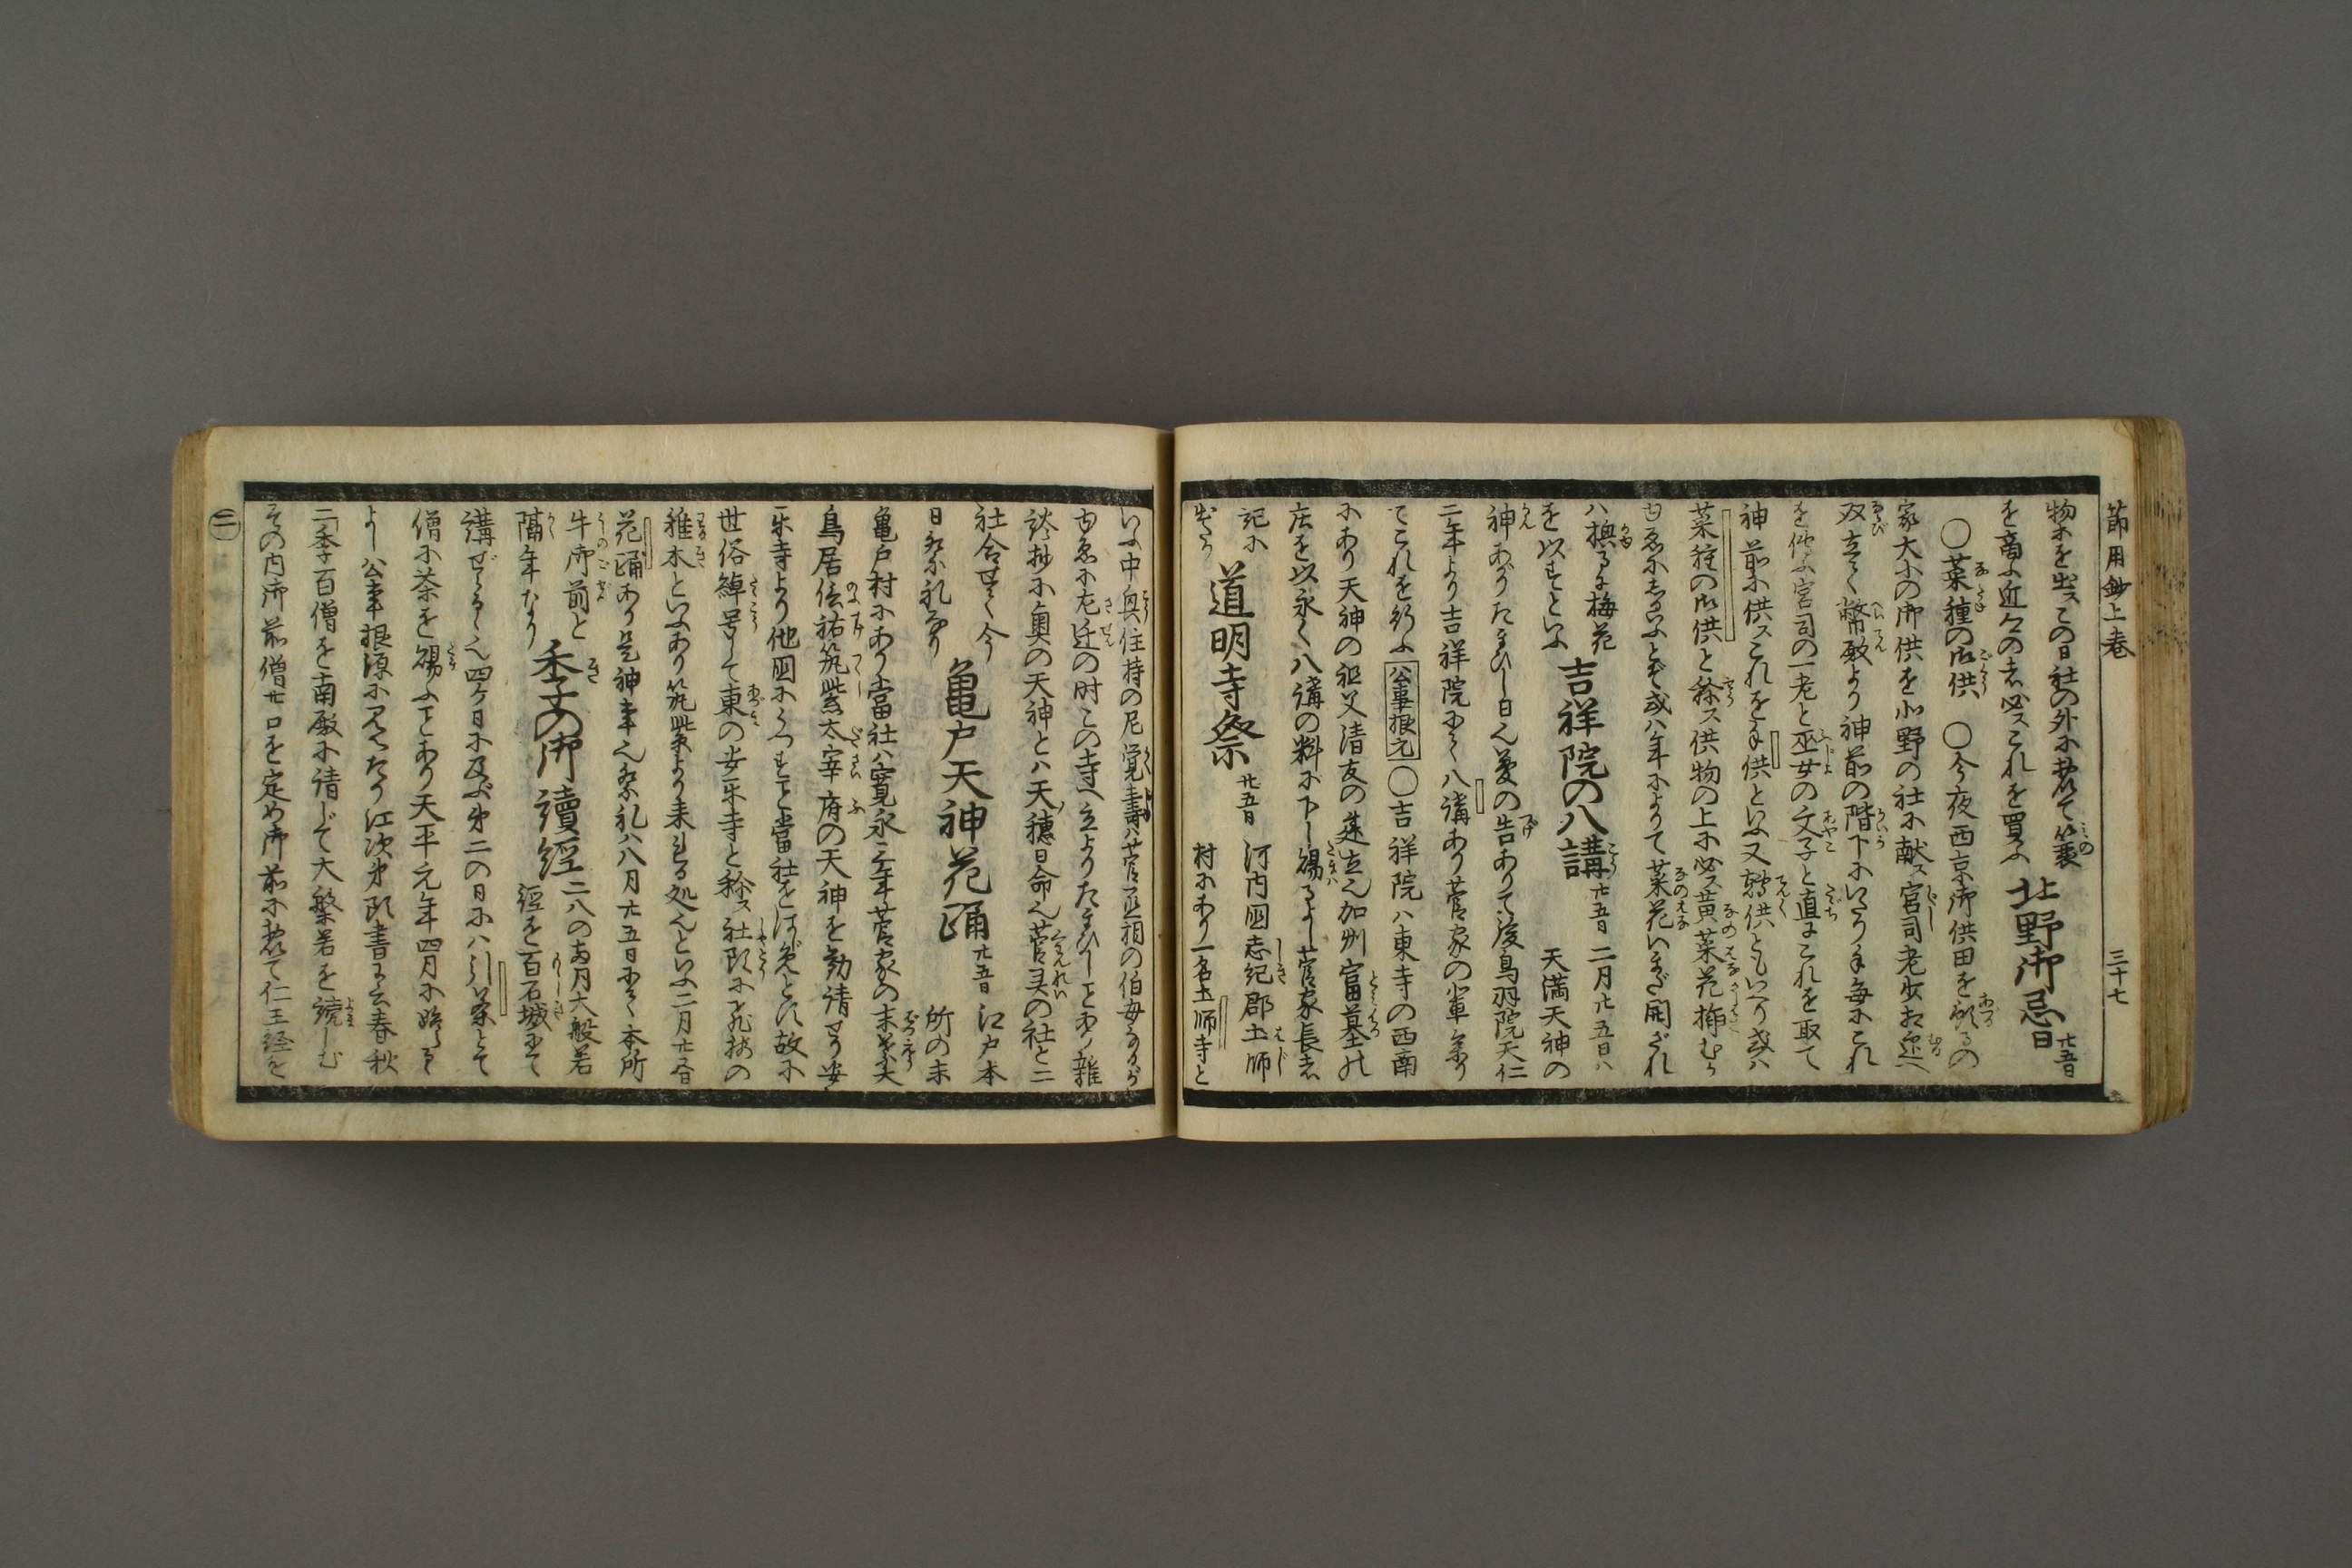 節用鈔上巻 三十七
物ホを出スこの日社の外ホ於て簑
を商ふ近久の者必スこれを買ふ
北野御忌日 廿五日
〇菜種の御供 〇今夜西京御供田を預るの
家大小の御供を北野の社ホ献ス宮司老少相迎へ
双立て幣殿より神前の階下ホいたり手毎ホこれ
を伝ふ宮司の一老と巫女の文子と直にこれを取て
神前ホ供スこれを手供といふ又轉供ともいへり或ハ
菜種の御供と称ス供物の上ホ必ス黄菜花を挿む
ゆゑホしかいふとぞ或ハ年ホよりて菜花いまだ開ざれ
ハ換るに梅花
を以すといふ
吉祥院の八講 廿五日
二月廿五日ハ
天満天神の
神あがりたまひし日也夢の告ありて後鳥羽院天仁
二年より吉祥院にて八講あり菅家の小輩参り
てこれを行ふ 公事根元 〇吉祥院ハ東寺の西南
ホあり天神の祖父清友の建立也加州富墓の
庄を以永く八講の料ホ下し賜るよし菅家長者
記ホ
出たり
道明寺祭 廿五日
河内国志紀郡土師
村ホあり一名土師寺と
いふ中興住持の尼覚寿ハ菅丞相の伯母なるが
ゆゑホ左迁の时この寺へ立よりたまひしとあり雑
談抄ホ奥の天神とハ天穂日命也菅灵の社と二
社合せて今
日祭礼あり
亀戸天神花踊 廿五日
江戸本
所の末
亀戸村ホあり當社ハ寛永三年菅家の末葉大
鳥居信祐筑紫太宰府の天神を勧請せり安
楽寺より他国ホうつすこと當社をはじめとす故ホ
世俗綽号して東の安楽寺と称ス社頭に飛梅の
稚木といふあり筑紫より来れる処也といふ二月廿五日
花踊あり是神事也祭礼ハ八月廿五日にて本所
牛御前と
隔年なり
季の御讀經
二八の両月大般若
經を百石城にて
講ぜらる也四ケ日ホ及ぶ第二の日ホハ引茶とて
僧ホ茶を賜ふことあり天平元年四月ホ始る
よし公事根源ホ見へたり江次第頭書に云春秋
二季百僧を南殿ホ請じて大槃若を読しむ
その内御前僧廿口を定め御前ホ於て仁王経を
二